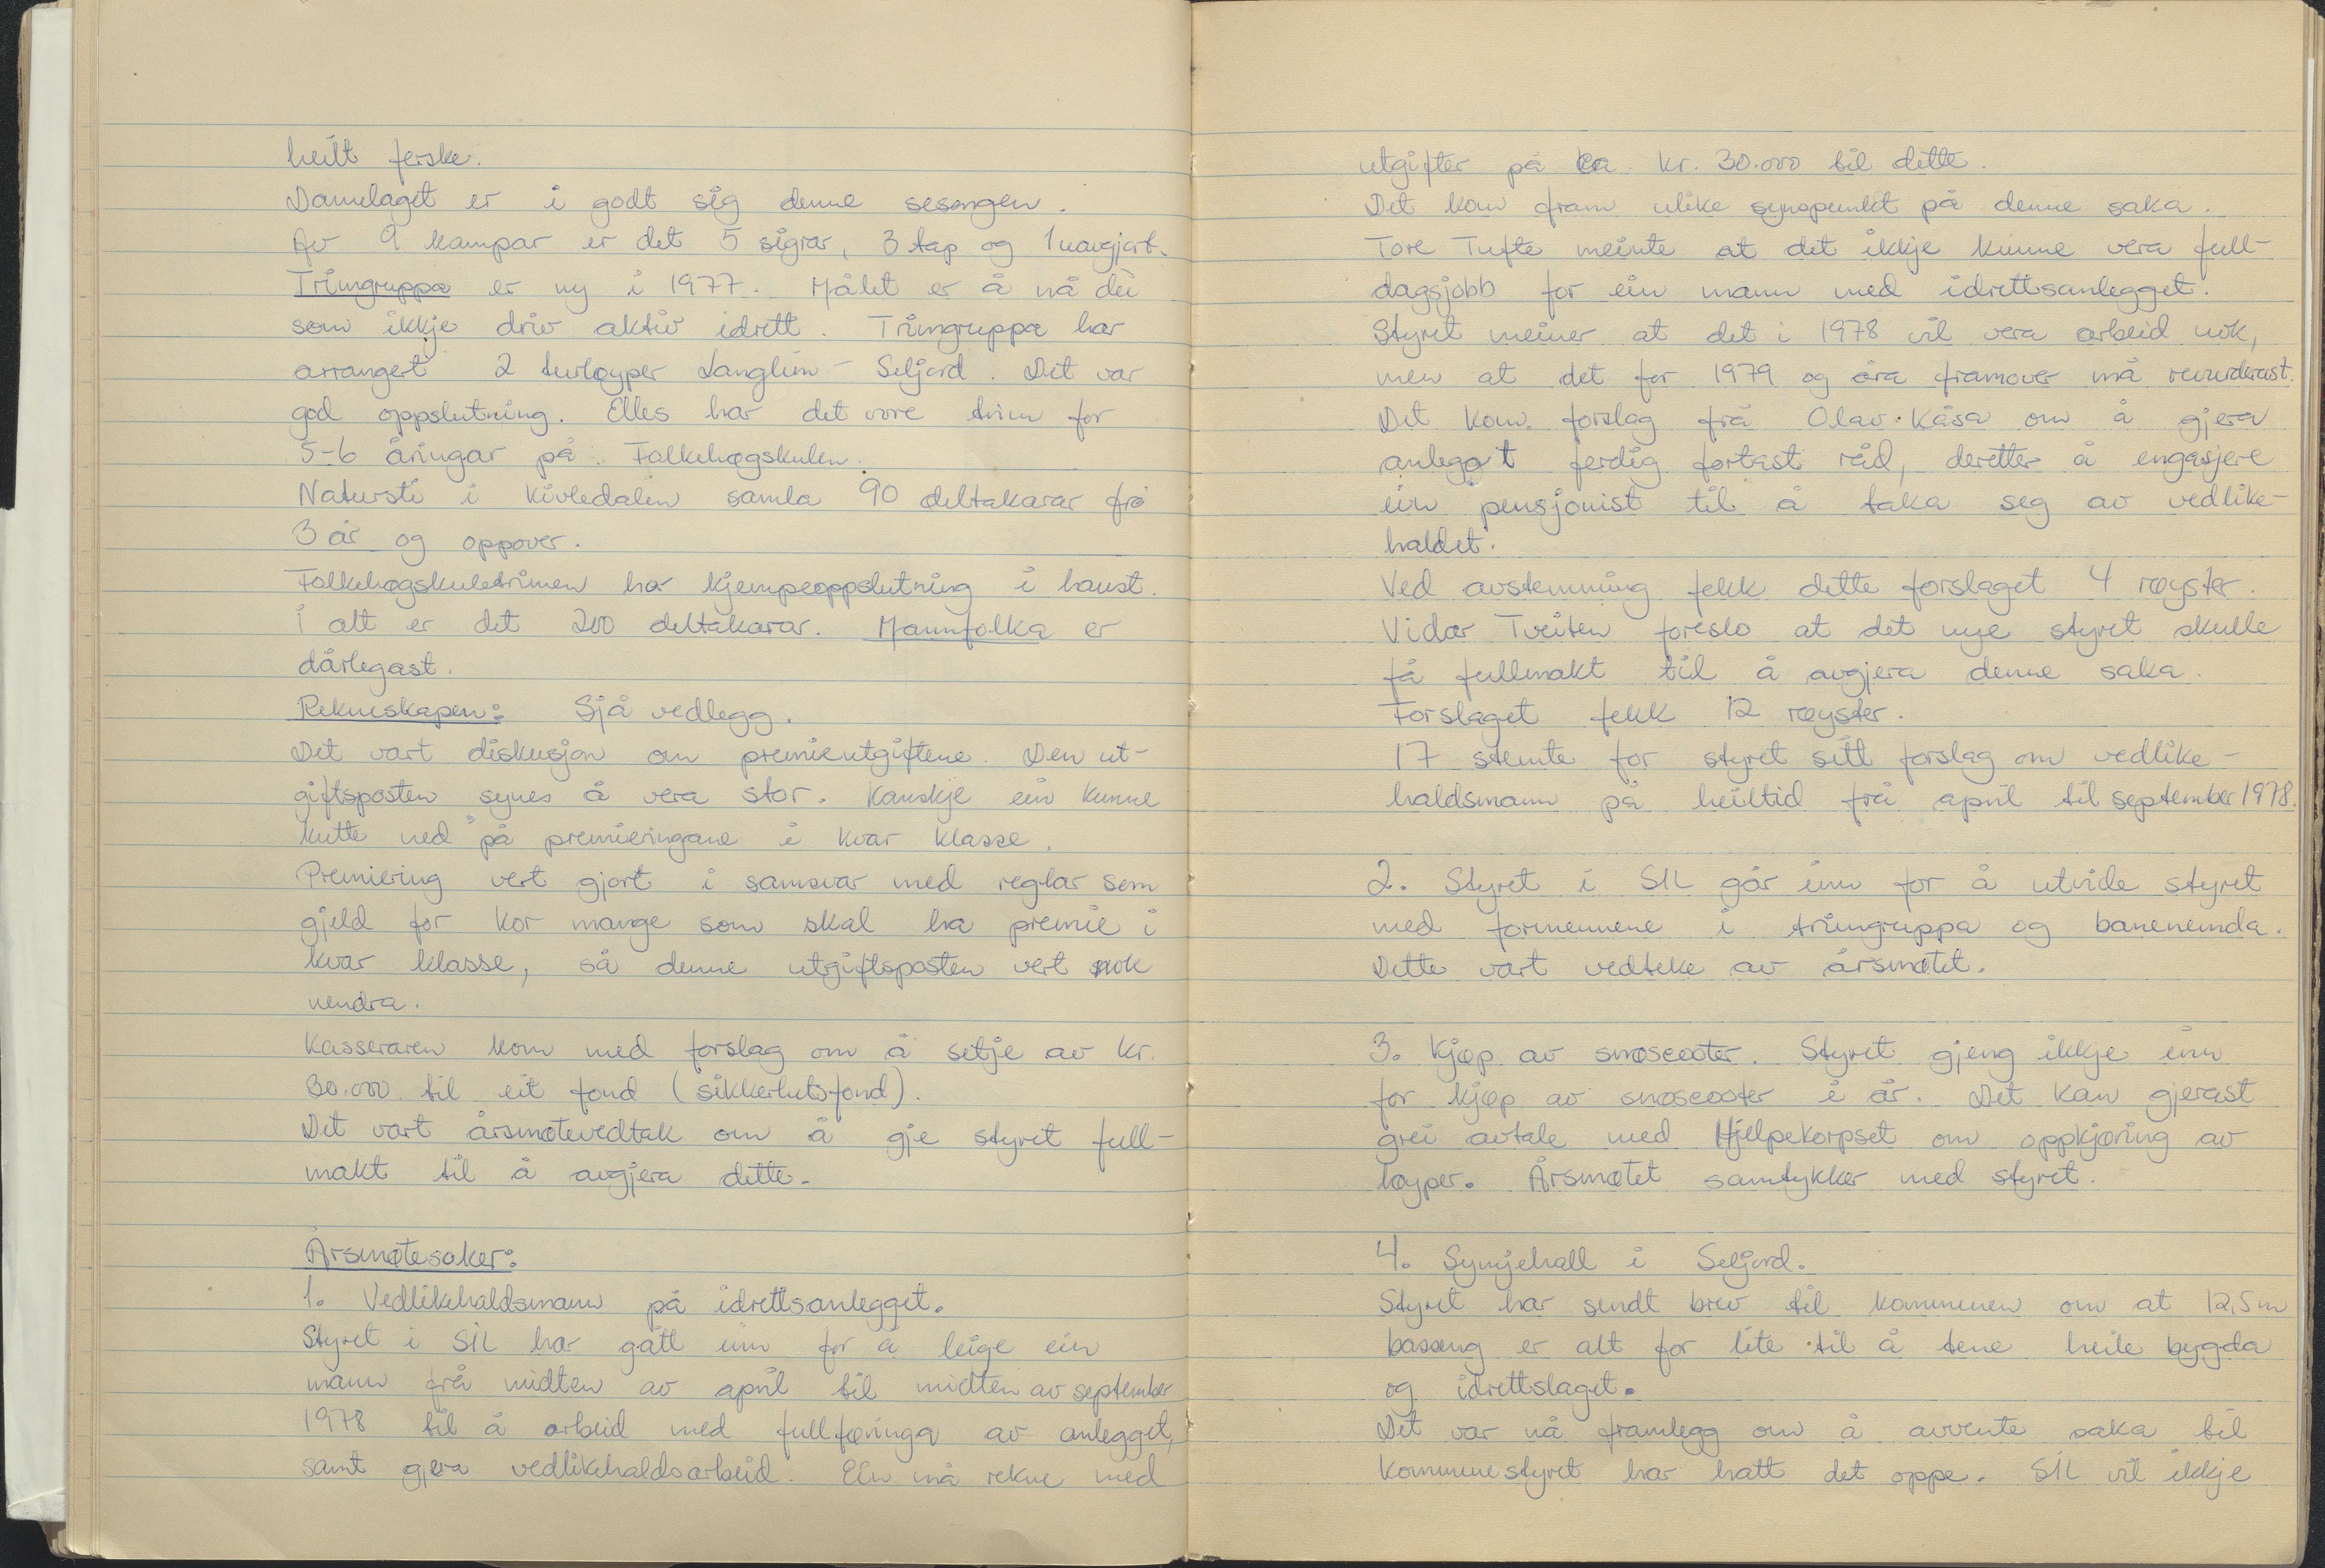 heilt ferske.
Damelaget er i godt sig denne sesongen.
Av 9 kampar er det 5 sigrar, 3 tap og 1 uavgjort.
Trimgruppa er ny i 1977. Målet er å nå dei
som ikkje driv aktiv idrett. Trimgruppa har
arrangert 2 turløyper Langlim - Seljord. Det var
god oppslutning. Elles har det vore trim for
5-6 åringar på Folkehøgskulen.
Natursti i Kivledalen samla 90 deltakarar frå
3 år og oppover.
Folkehøgskuletrimen har kjempeoppslutning i haust.
I alt er det 200 deltakarar. Mannfolka er
dårlegast.
Rekneskapen: Sjå vedlegg.
Det vart diskusjon om premieutgiftene. Den ut-
giftsposten synes å vera stor. Kanskje ein kunne
kutte ned på premieringane i kvar klasse.
Premiering vert gjort i samsvar med reglar som
gjeld for kor mange som skal ha premie i
kvar klasse, så denne utgiftsposten vert nok
uendra.
Kasseraren kom med forslag om å setje av kr.
30.000 til eit fond (sikkerhetsfond).
Det vart årsmøtevedtak om å gje styret full-
makt til å avgjera dette.
Årsmøtesaker:
1. Vedlikehaldsmann på idrettsanlegget.
Styret i SIL har gått inn for å leige ein
mann frå midten av april til midten av september
1978 til å arbeid med fullføringa av anlegget,
samt gjera vedlikehaldsarbeid. Ein må rekne med
utgifter på ca. kr. 30.000 til dette.
Det kom fram ulike synspunkt på denne saka.
Tore Tufte meinte at det ikkje kunne vera full-
dagsjobb for ein mann med idrettsanlegget.
Styret meiner at det i 1978 vil vera arbeid nok,
men at det for 1979 og åra framover må revurderast.
Det kom forslag frå Olav Kåsa om å gjera
anlegget ferdig fortast råd, deretter å engasjere
ein pensjonist til å taka seg av vedlike-
haldet.
Ved avstemming fekk dette forslaget 4 røyster.
Vidar Tveiten foreslo at det nye styret skulle
få fullmakt til å avgjera denne saka.
Forslaget fekk 12 røyster.
17 stemte for styret sitt forslag om vedlike-
haldsmann på heiltid frå april til september 1978.
2. Styret i SIL går inn for å utvide styret
med formennene i trimgruppa og banenemda.
Dette vart vedteke av årsmøtet.
3. Kjøp av snøscooter. Styret gjeng ikkje inn
for kjøp av snøscooter i år. Det kan gjerast
grei avtale med Hjelpekorpset om oppkjøring av
løyper. Årsmøtet samtykker med styret.
4. Symjehall i Seljord.
Styret har sendt brev til kommunen om at 12,5 m
basseng er alt for lite til å tene heile bygda
og idrettslaget.
Det var nå framlegg om å avvente saka til
kommunestyret har hatt det oppe. SIL vil ikkje